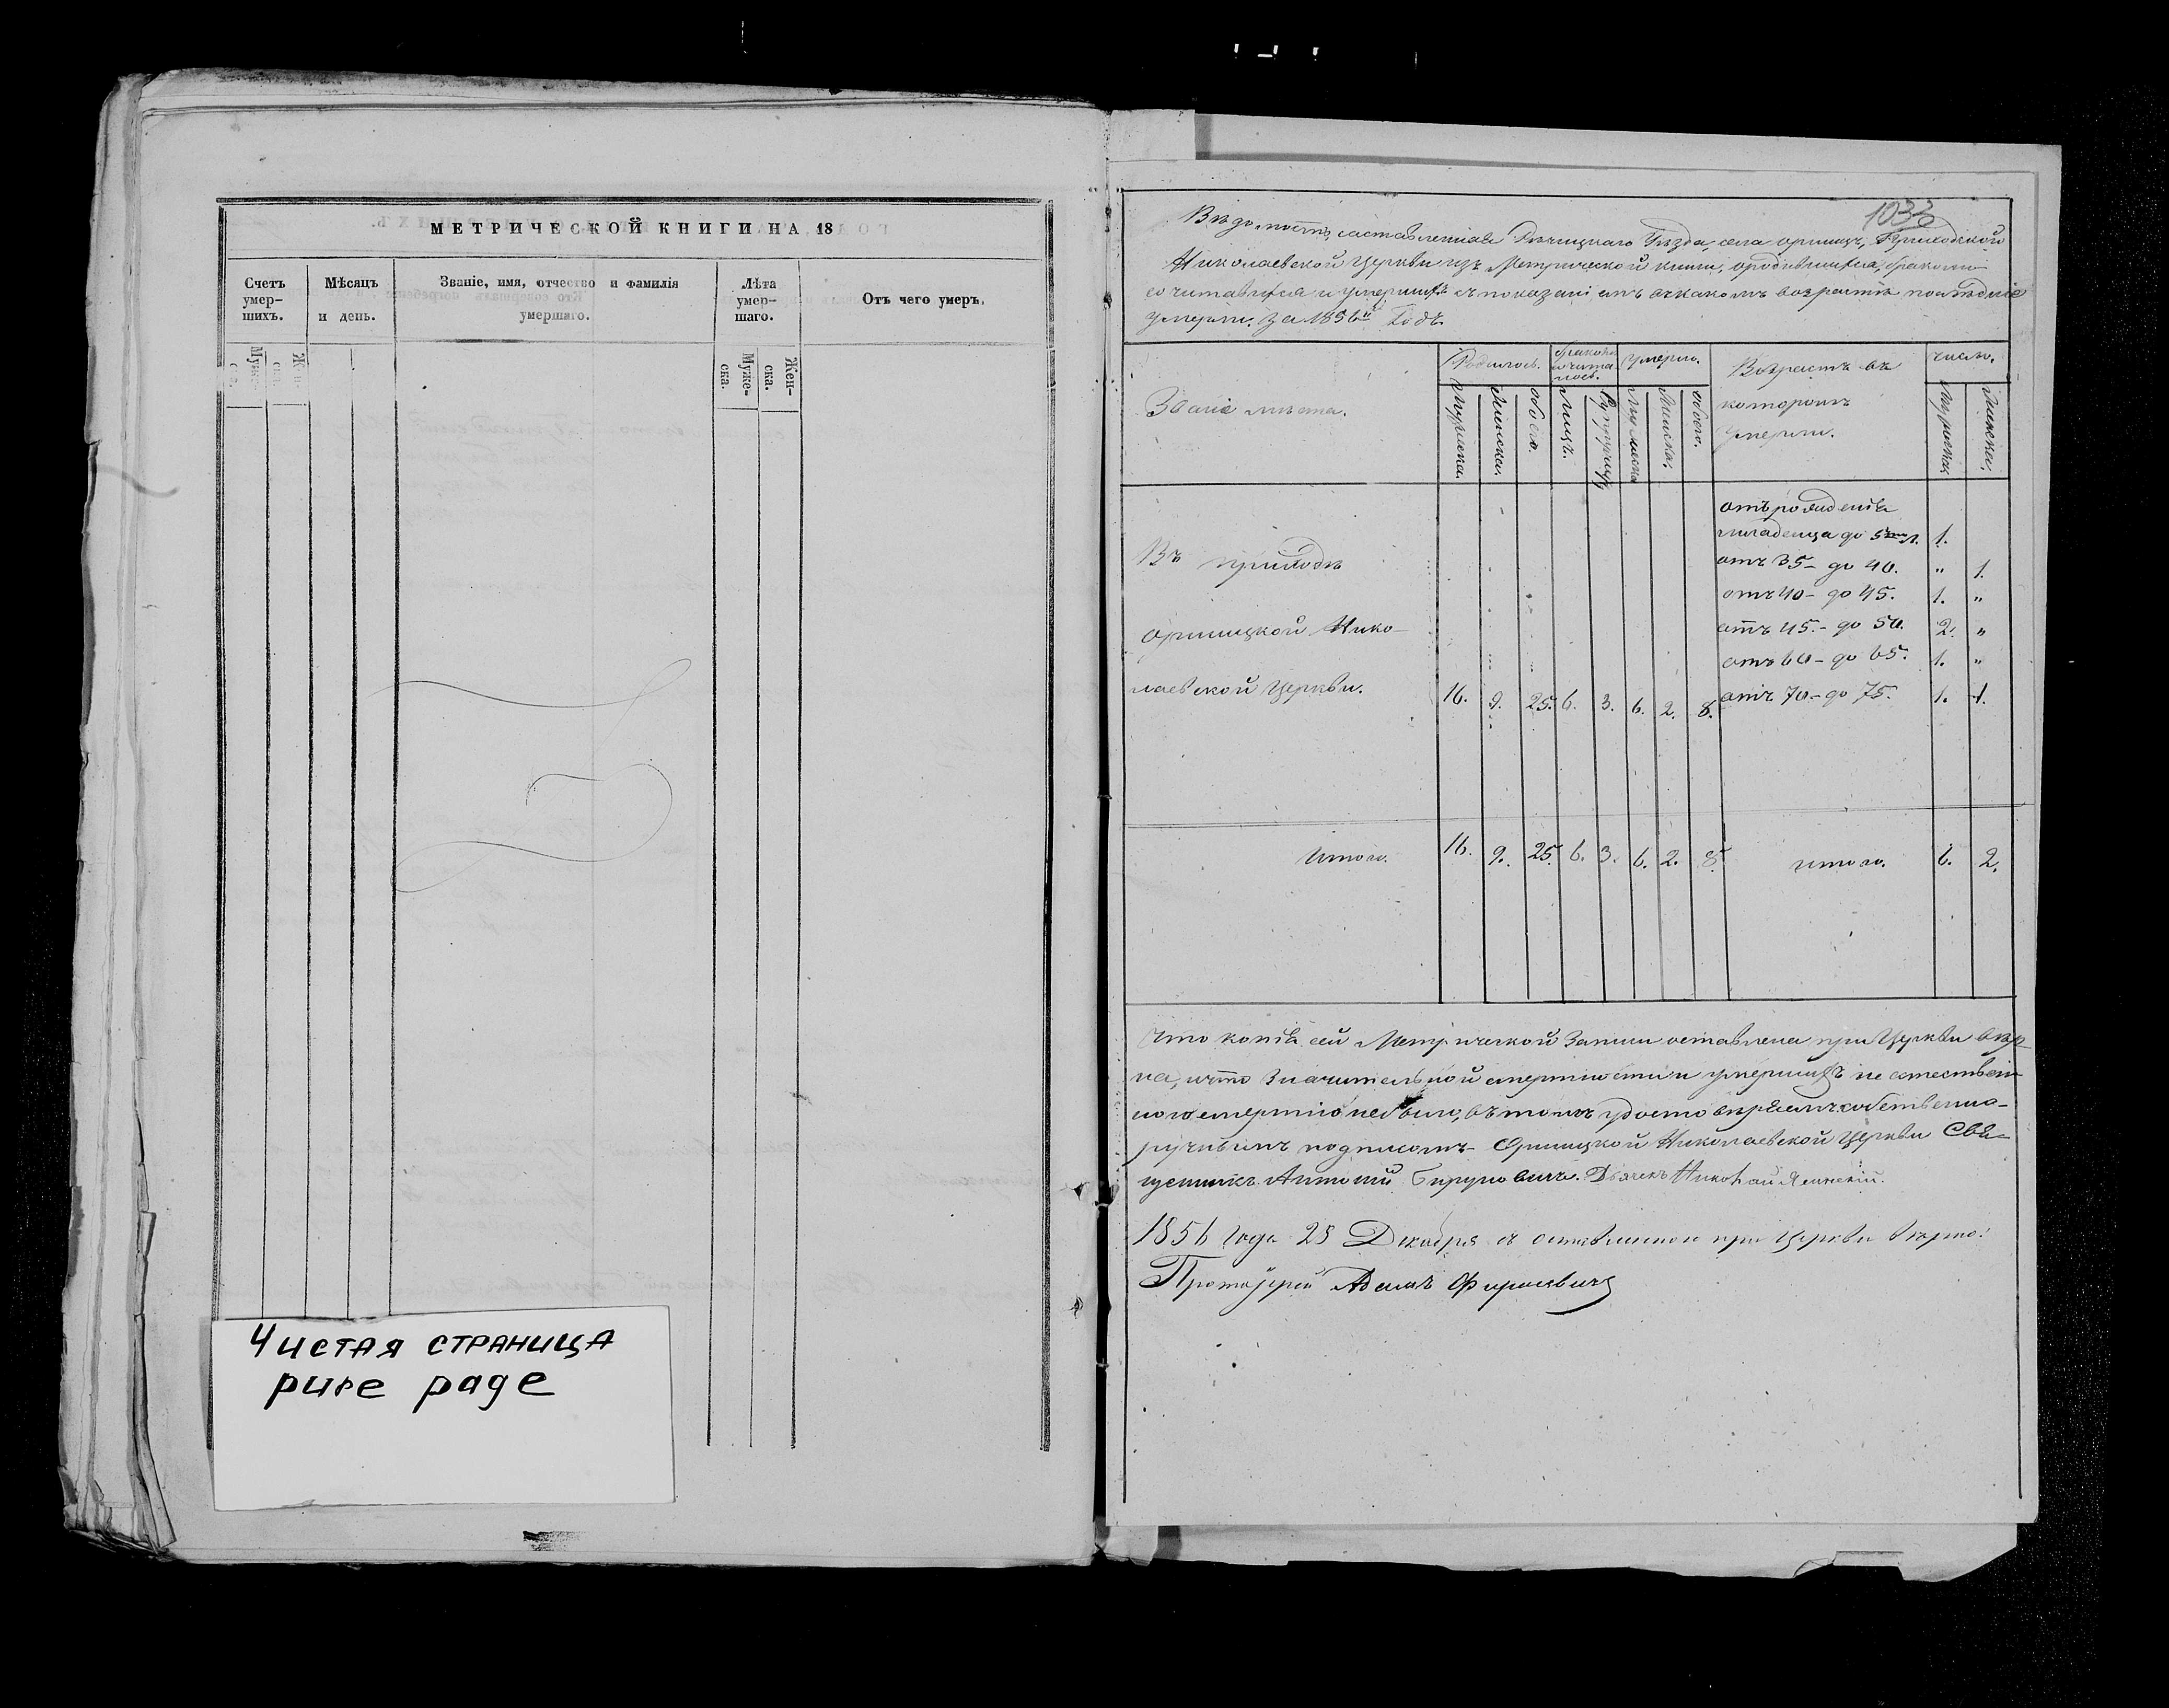 МЕТРИЧЕСКОЙ КНИГИ НА 18
Счетъ умер-шихъ.
Мѣсяцъ и день.
Званіе, имя, отчество и фамилія умершаго.
Лѣта умер-шаго.
Отъ чего умеръ.
Муже-ска.
Жен-ска.
Муже-ска.
Жен-ска.
Чистая страница
pure page
1033
Вѣдомость, составленная Рѣчицкаго Уѣзда, села Оришицъ, Приходской
Николаевской Церкви изъ Метрической книги, о родившихся, бракомъ
сочитавшихся и умершихъ съ показаніемъ въ какомъ возрастѣ послѣдніе
умерли. За 1856й Годъ.
Званіе мѣста.
Родилось.
Умерло.
Возрастъ въ
котороmъ
умерли.
число.
Мужеска.
Женска.
обоего.
Лицъ.
Супружествъ
Мужеска
Женска.
обоего.
Мужеска
Женска.
отъ рожденія
младенца до 5 л. 1.
отъ 35 - до 40. " 1.
отъ 40 - до 45. 1. "
отъ 45. - до 50. 2. "
отъ 60 - до 65. 1. "
отъ 70 - до 75. 1. 1.
Въ приходѣ
Оришицкой Нико-
лаевской Церкви. 16. 9. 25. 6. 3. 6. 2. 8.
Итого. 16. 9. 25. 6. 3. 6. 2. 8. итого. 6. 2.
Что копія сей Метрической Записи оставлена при Церкви вѣр-
на, и что значительной смертности и умершихъ не естествен-
ною смертію не было, въ томъ удостовѣряемъ собственно-
ручнымъ подписомъ - Оришицкой Николаевской Церкви Свя-
щенникъ Антоній Бируновичъ. Дьячекъ Николай Ясинскій.
1856 года 28 Декабря съ оставленною при Церкви вѣрно:
Протоіерей Адамъ Фирисевичъ